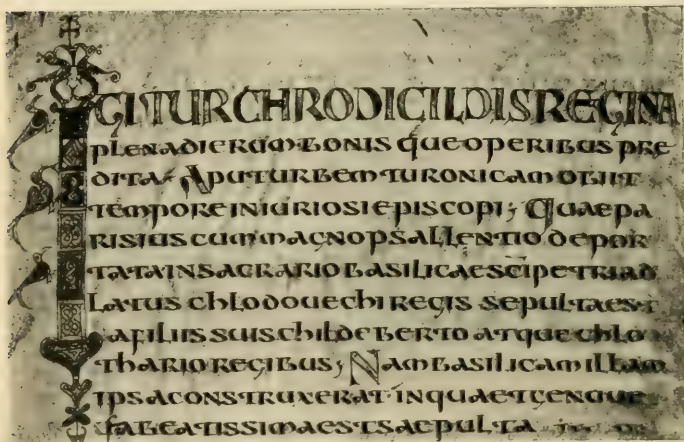 IGITUR CHRODICILDIS REGINA
PLENA DIERUM BONIS QUE OPERIBUS PRE
DITA· APUT URBEM TURONICAM OBIIT
TEMPORE INIURIOSI EPISCOPI; QUAE PA
RISIUS CUM MAGNO PSALLENTIO DEPOR
TATA IN SACRARIO BASILICAE SCI PETRI AD
LATUS CHLODOUECHI REGIS SEPULTA EST
A FILIIS SUIS CHILDEBERTO ATQUE CHLO
THARIO REGIBUS; NAM BASILICAM ILLAM
IPSA CONSTRUXERAT IN QUA ET GENOUE
FA BEATISSIMA EST SAEPULTA